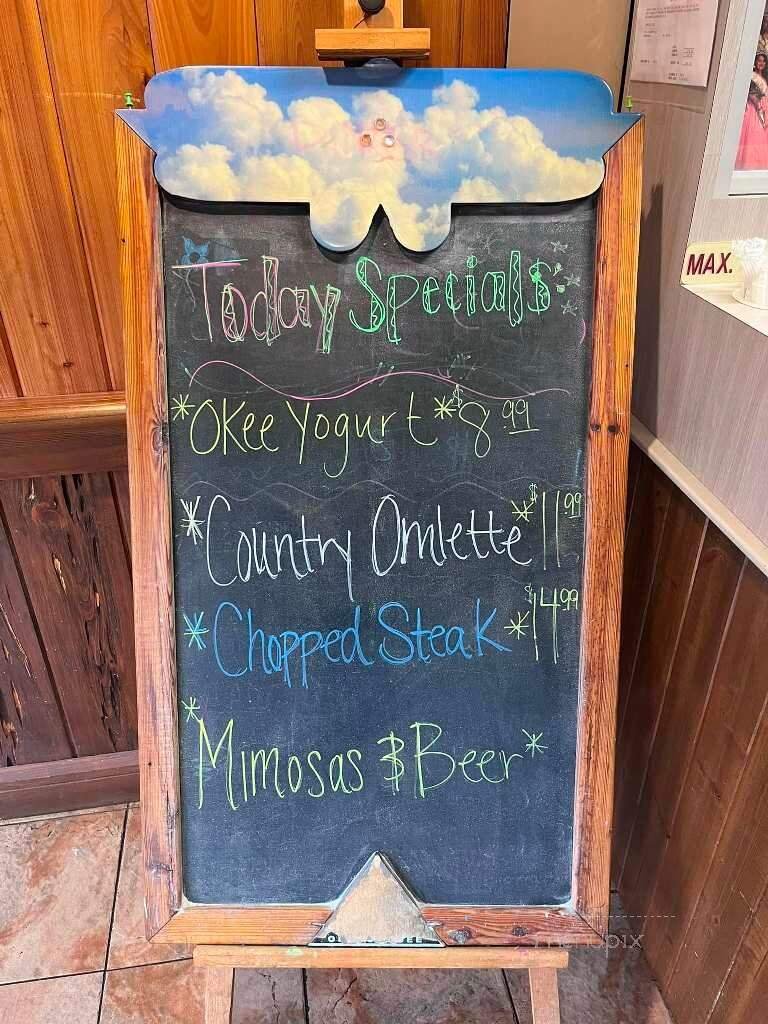 Today Specials
*OKee Yogurt* $8.99
*Country Omlette* $11.99
*Chopped Steak* $14.99
*Mimosas & Beer*
MAX.
menupix